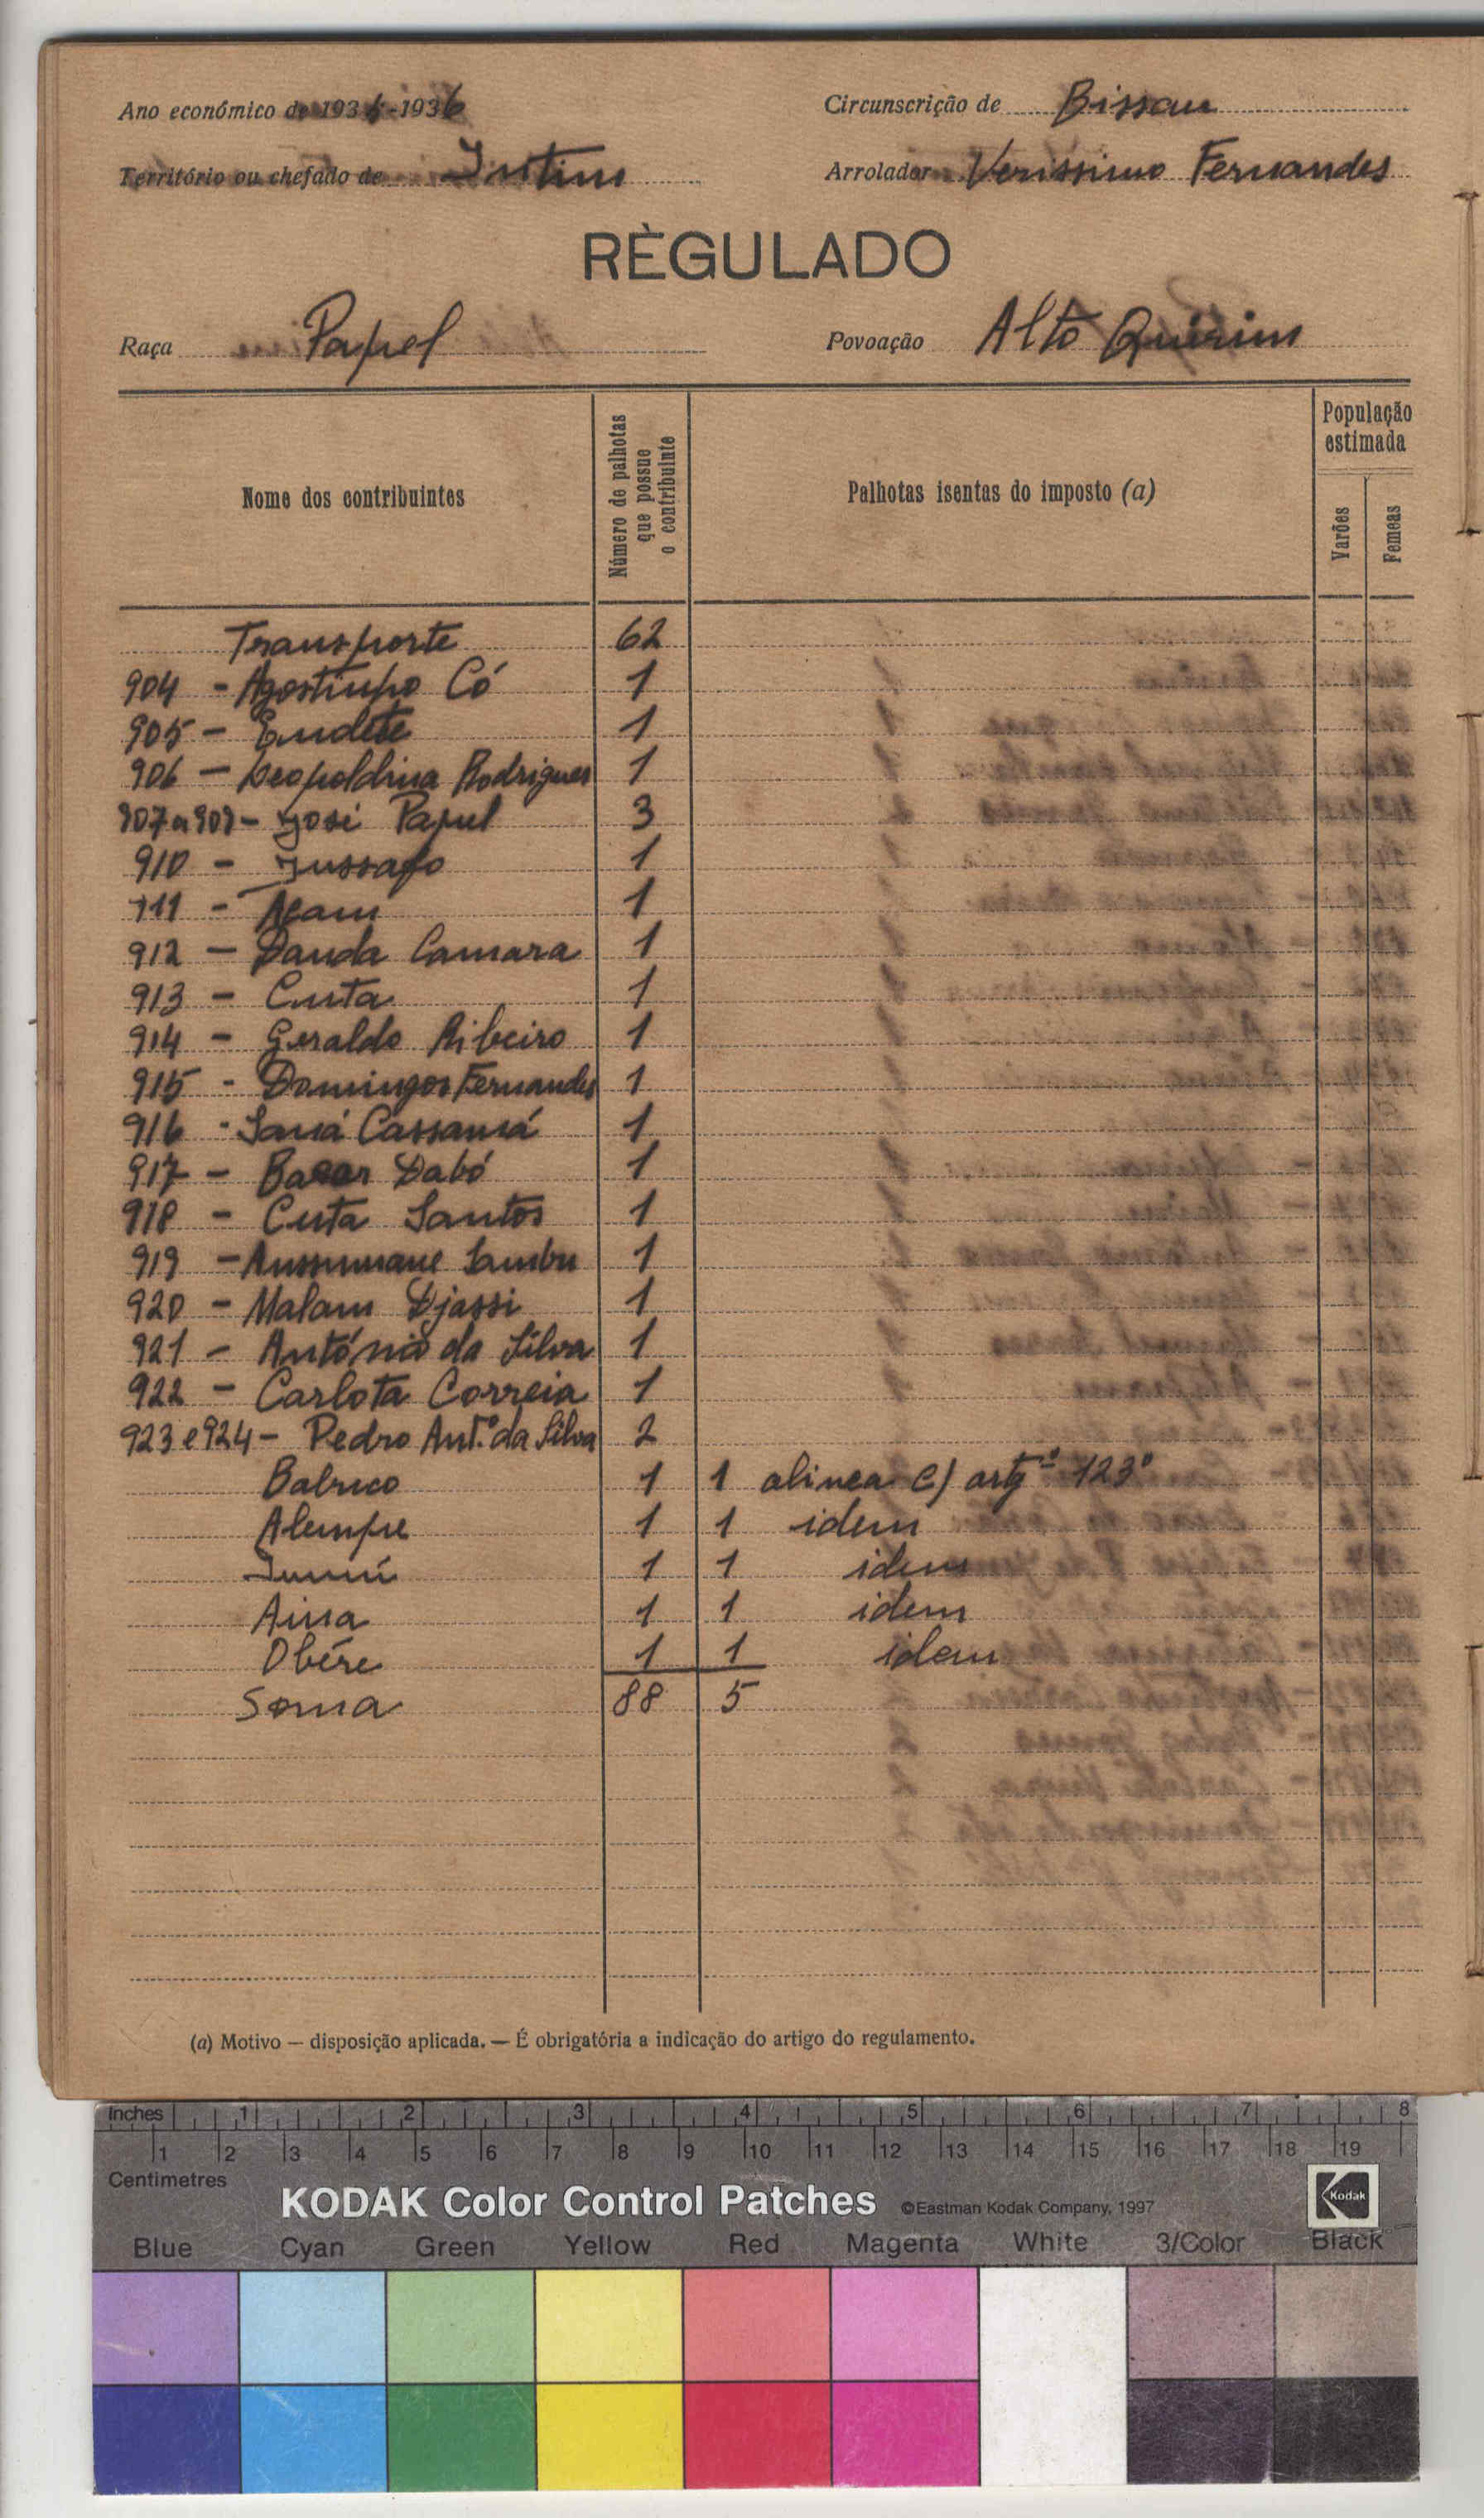 Ano económico de 193 -1936
Circunscrição de Bissau
Território ou chefado de Intim
Arrolador Verissimo Fernandes
RÈGULADO
Raça Papel
Povoação Alto Quirim
Nome dos contribuintes
Número de palhotas que possue o contribuinte
Palhotas isentas do imposto (a)
População estimada
Varões
Femeas
Transporte 62
904 - Agostinho Có 1
905 - Endete 1
906 - Leopoldina Rodrigues 1
907 a 909 - José Papel 3
910 - Jussafo 1
911 - 1
912 - Dauda Camara 1
913 - Custa 1
914 - Geraldo Ribeiro 1
915 - Domingos Fernandes 1
916 - Saná Cassamá 1
917 - Bacar Dabó 1
918 - Custa Santos 1
919 - Aussumane Sambu 1
920 - Malam Djassi 1
921 - António da Silva 1
922 - Carlota Correia 1
923 e 924 - Pedro Ant.º da Silva 2
1 1 alinea c) artgº 123º
Alempre 1 1 idem
1 1 idem
Aissa 1 1 idem
Obére 1 1 idem
Soma 88 5
(a) Motivo — disposição aplicada. — É obrigatória a indicação do artigo do regulamento.
Inches 1 2 3 4 5 6 7 8
1 2 3 4 5 6 7 8 9 10 11 12 13 14 15 16 17 18 19
Centimetres
KODAK Color Control Patches ©Eastman Kodak Company, 1997 Kodak
Blue Cyan Green Yellow Red Magenta White 3/Color Black